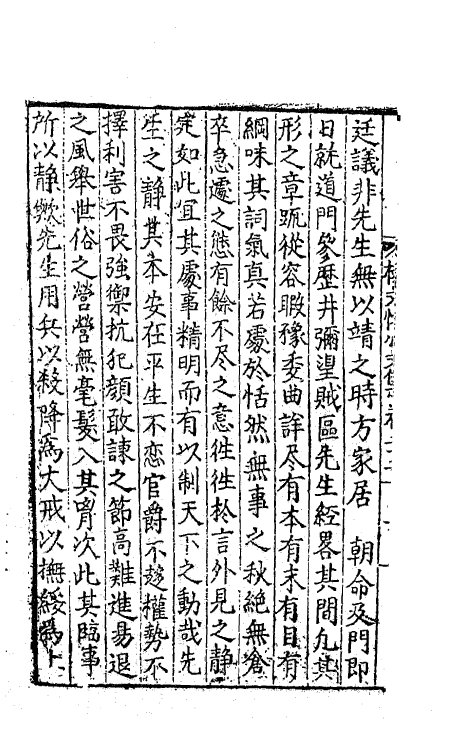 廷議非先生無以靖之時方家居　朝命及門即
日就道門參歷井彌望賊區先生經畧其間凢其
形之章䟽從容暇豫委曲詳尽有本有末有目有
綱味其詞氣真若處於恬然無事之秋絶無倉
卒急遽之態有餘不尽之意徃徃於言外見之静
如此宜其處事精明而有以制天下之動哉先
生之静其本安在平生不恋官爵不趍權勢不
擇利害不畏強禦抗犯顔敢諌之節高難進易退
之風舉世俗之營營無毫髮入其胷次此其臨事
所以静歟先生用兵以殺降為大戒以撫綏為上